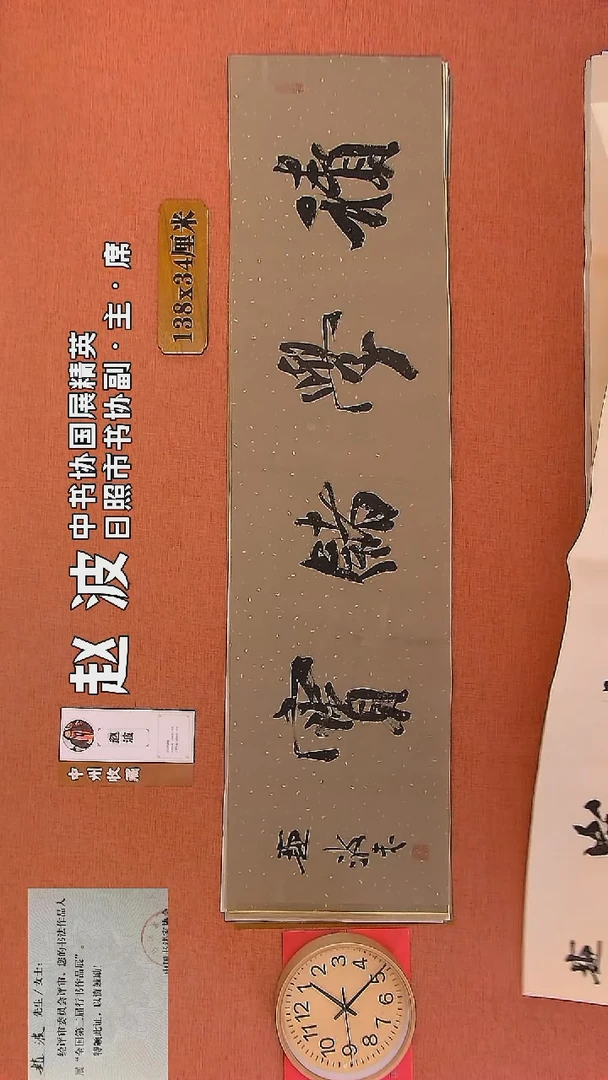 138x34厘米
中书协国展精英
日照市书协副·主·席
赵 波
中州收藏
赵波
積學儲寶
趙波 先生/女士：
经评审委员会评审，您的书法作品入
展“全国第二届行书作品展”。
特颁此证，以资鼓励！
12 1 2 3 4 5 6 7 8 9 10 11